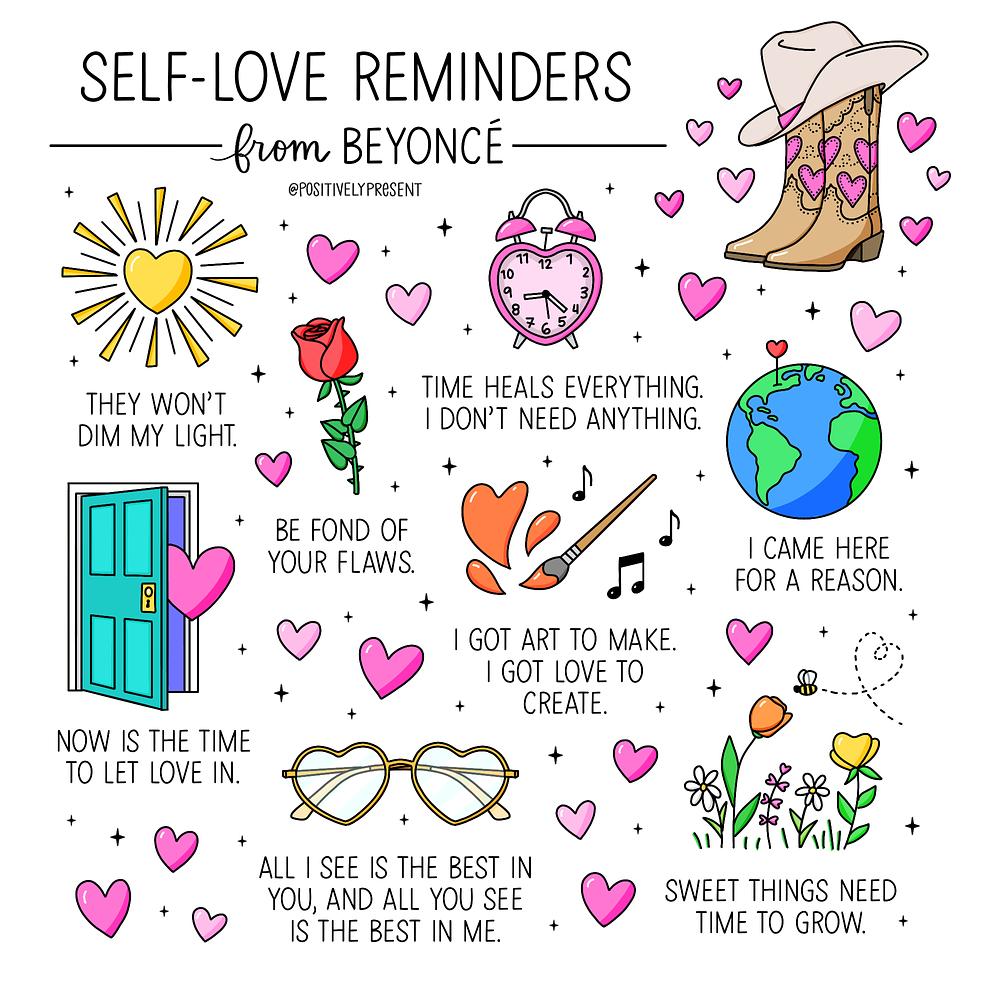 SELF-LOVE REMINDERS
from BEYONCÉ
@POSITIVELYPRESENT
THEY WON'T
DIM MY LIGHT.
BE FOND OF
YOUR FLAWS.
10 11 12 1 2 3 4 5 6 7 8 9
TIME HEALS EVERYTHING.
I DON'T NEED ANYTHING.
I CAME HERE
FOR A REASON.
NOW IS THE TIME
TO LET LOVE IN.
I GOT ART TO MAKE.
I GOT LOVE TO
CREATE.
ALL I SEE IS THE BEST IN
YOU, AND ALL YOU SEE
IS THE BEST IN ME.
SWEET THINGS NEED
TIME TO GROW.